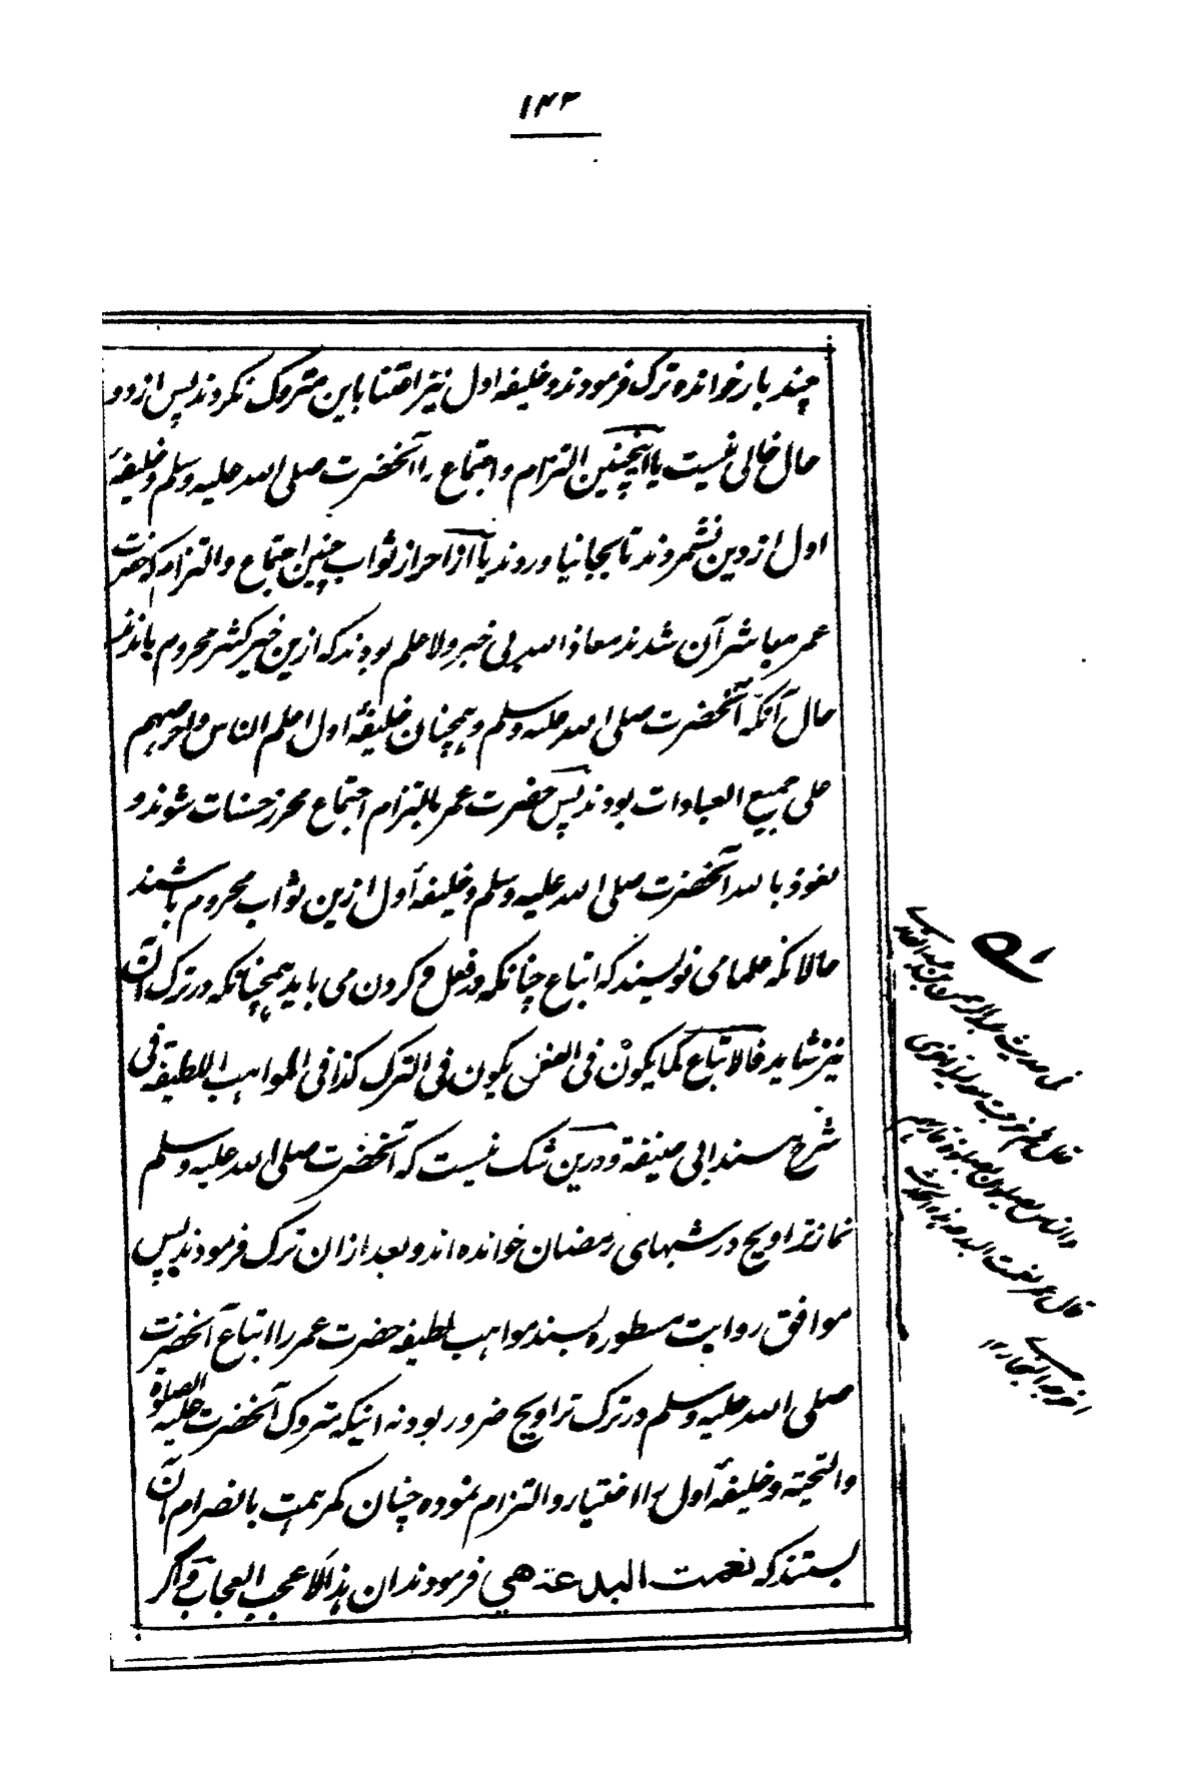 ۱۴۳
چند بار خوانده ترک فرمودند و خلیفه اول نیز اقتنا باین متروک نکردند پس از دو
حال خالی نیست یا اینچنین التزام و اجتماع را آنحضرت صلی الله علیه وسلم و خلیفهٔ
اول از دین نشمردند تا بجا نیاوردند یا از احراز ثواب چنین اجتماع و التزام که حضرت
عمر مباشر آن شدند معاذ الله بی خبر و لا علم بودند که ازین خیر کثیر محروم ماندند
حال آنکه آنحضرت صلی الله علیه وسلم و همچنان خلیفهٔ اول اعلم الناس و احرصهم
علی جمیع العبادات بودند پس حضرت عمر بالتزام اجتماع محرز حسنات شوند و
نعوذ بالله آنحضرت صلی الله علیه وسلم و خلیفه اول ازین ثواب محروم باشند
حالانکه علما می نویسند که اتباع چنانکه در فعل و کردن می باید همچنانکه در ترک آن
نیز شاید فالاتباع کما یکون فی الفعل یکون فی الترک کذا فی المواهب اللطیفه فی
شرح مسند ابی حنیفة و درین شک نیست که آنحضرت صلی الله علیه وسلم
نماز تراویح در شبهای رمضان خوانده اند و بعد ازان ترک فرمودند پس
موافق روایت مسطوره بسند مواهب لطیفه حضرت عمر را اتباع آنحضرت
صلی الله علیه وسلم در ترک تراویح ضرور بود نه اینکه متروک آنحضرت علیه الصلوة
والتحیة و خلیفه اول را اختیار و التزام نموده چنان کمر همت بانصرام آن
بستند که نعمت البدعة هی فرمودند ان هذا لا عجب العجاب و اگر
قال عمر نعمت البدعة هذه الحدیث
اخرجه البخاری ۱۲